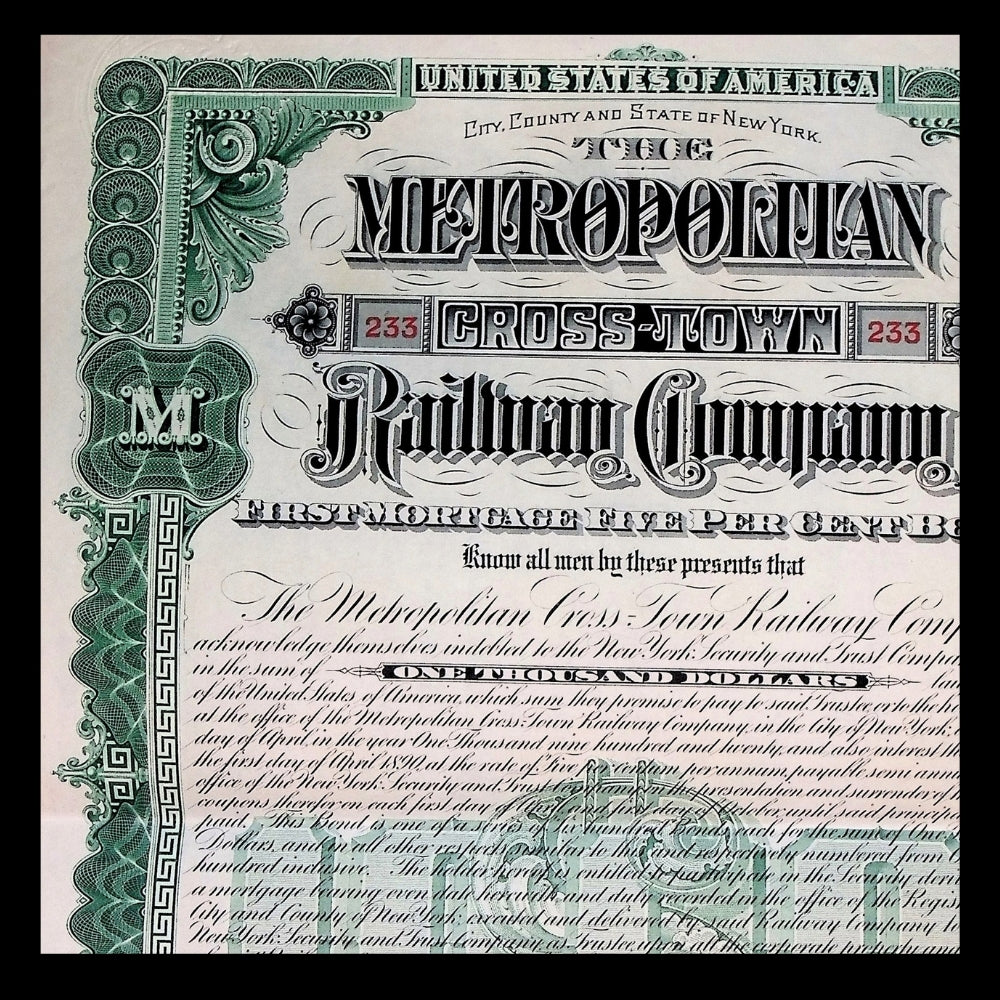 UNITED STATES OF AMERICA
CITY, COUNTY AND STATE OF NEW YORK.
THE
METROPOLITAN
233 CROSS-TOWN 233
Railway Company
M
FIRST MORTGAGE FIVE PER CENT B
Know all men by these presents that
The Metropolitan Cross-Town Railway Comp
acknowledge themselves indebted to the New York Security and Trust Compa
in the sum of ONE THOUSAND DOLLARS law
of the United States of America, which sum they promise to pay to said Trustee or to the h
at the office of the Metropolitan Cross-Town Railway Company, in the city of New York,
day of April, in the year One Thousand nine hundred and twenty, and also interest th
the first day of April 1890, at the rate of Five per centum per annum, payable semi ann
office of the New York Security and Trust Company on the presentation and surrender of
coupons therefor on each first day of April and first day of October, and said princip
paid. This Bond is one of a series of six hundred Bonds each for the sum of One
Dollars, and in all other respects similar to this and respectively numbered from O
hundred inclusive. The holder hereof is entitled to participate in the Security deri
a mortgage bearing even date herewith and duly recorded in the office of the Regis
City and County of New York executed and delivered by said Railway Company to
New York Security and Trust Company as Trustee, upon all the corporate property an